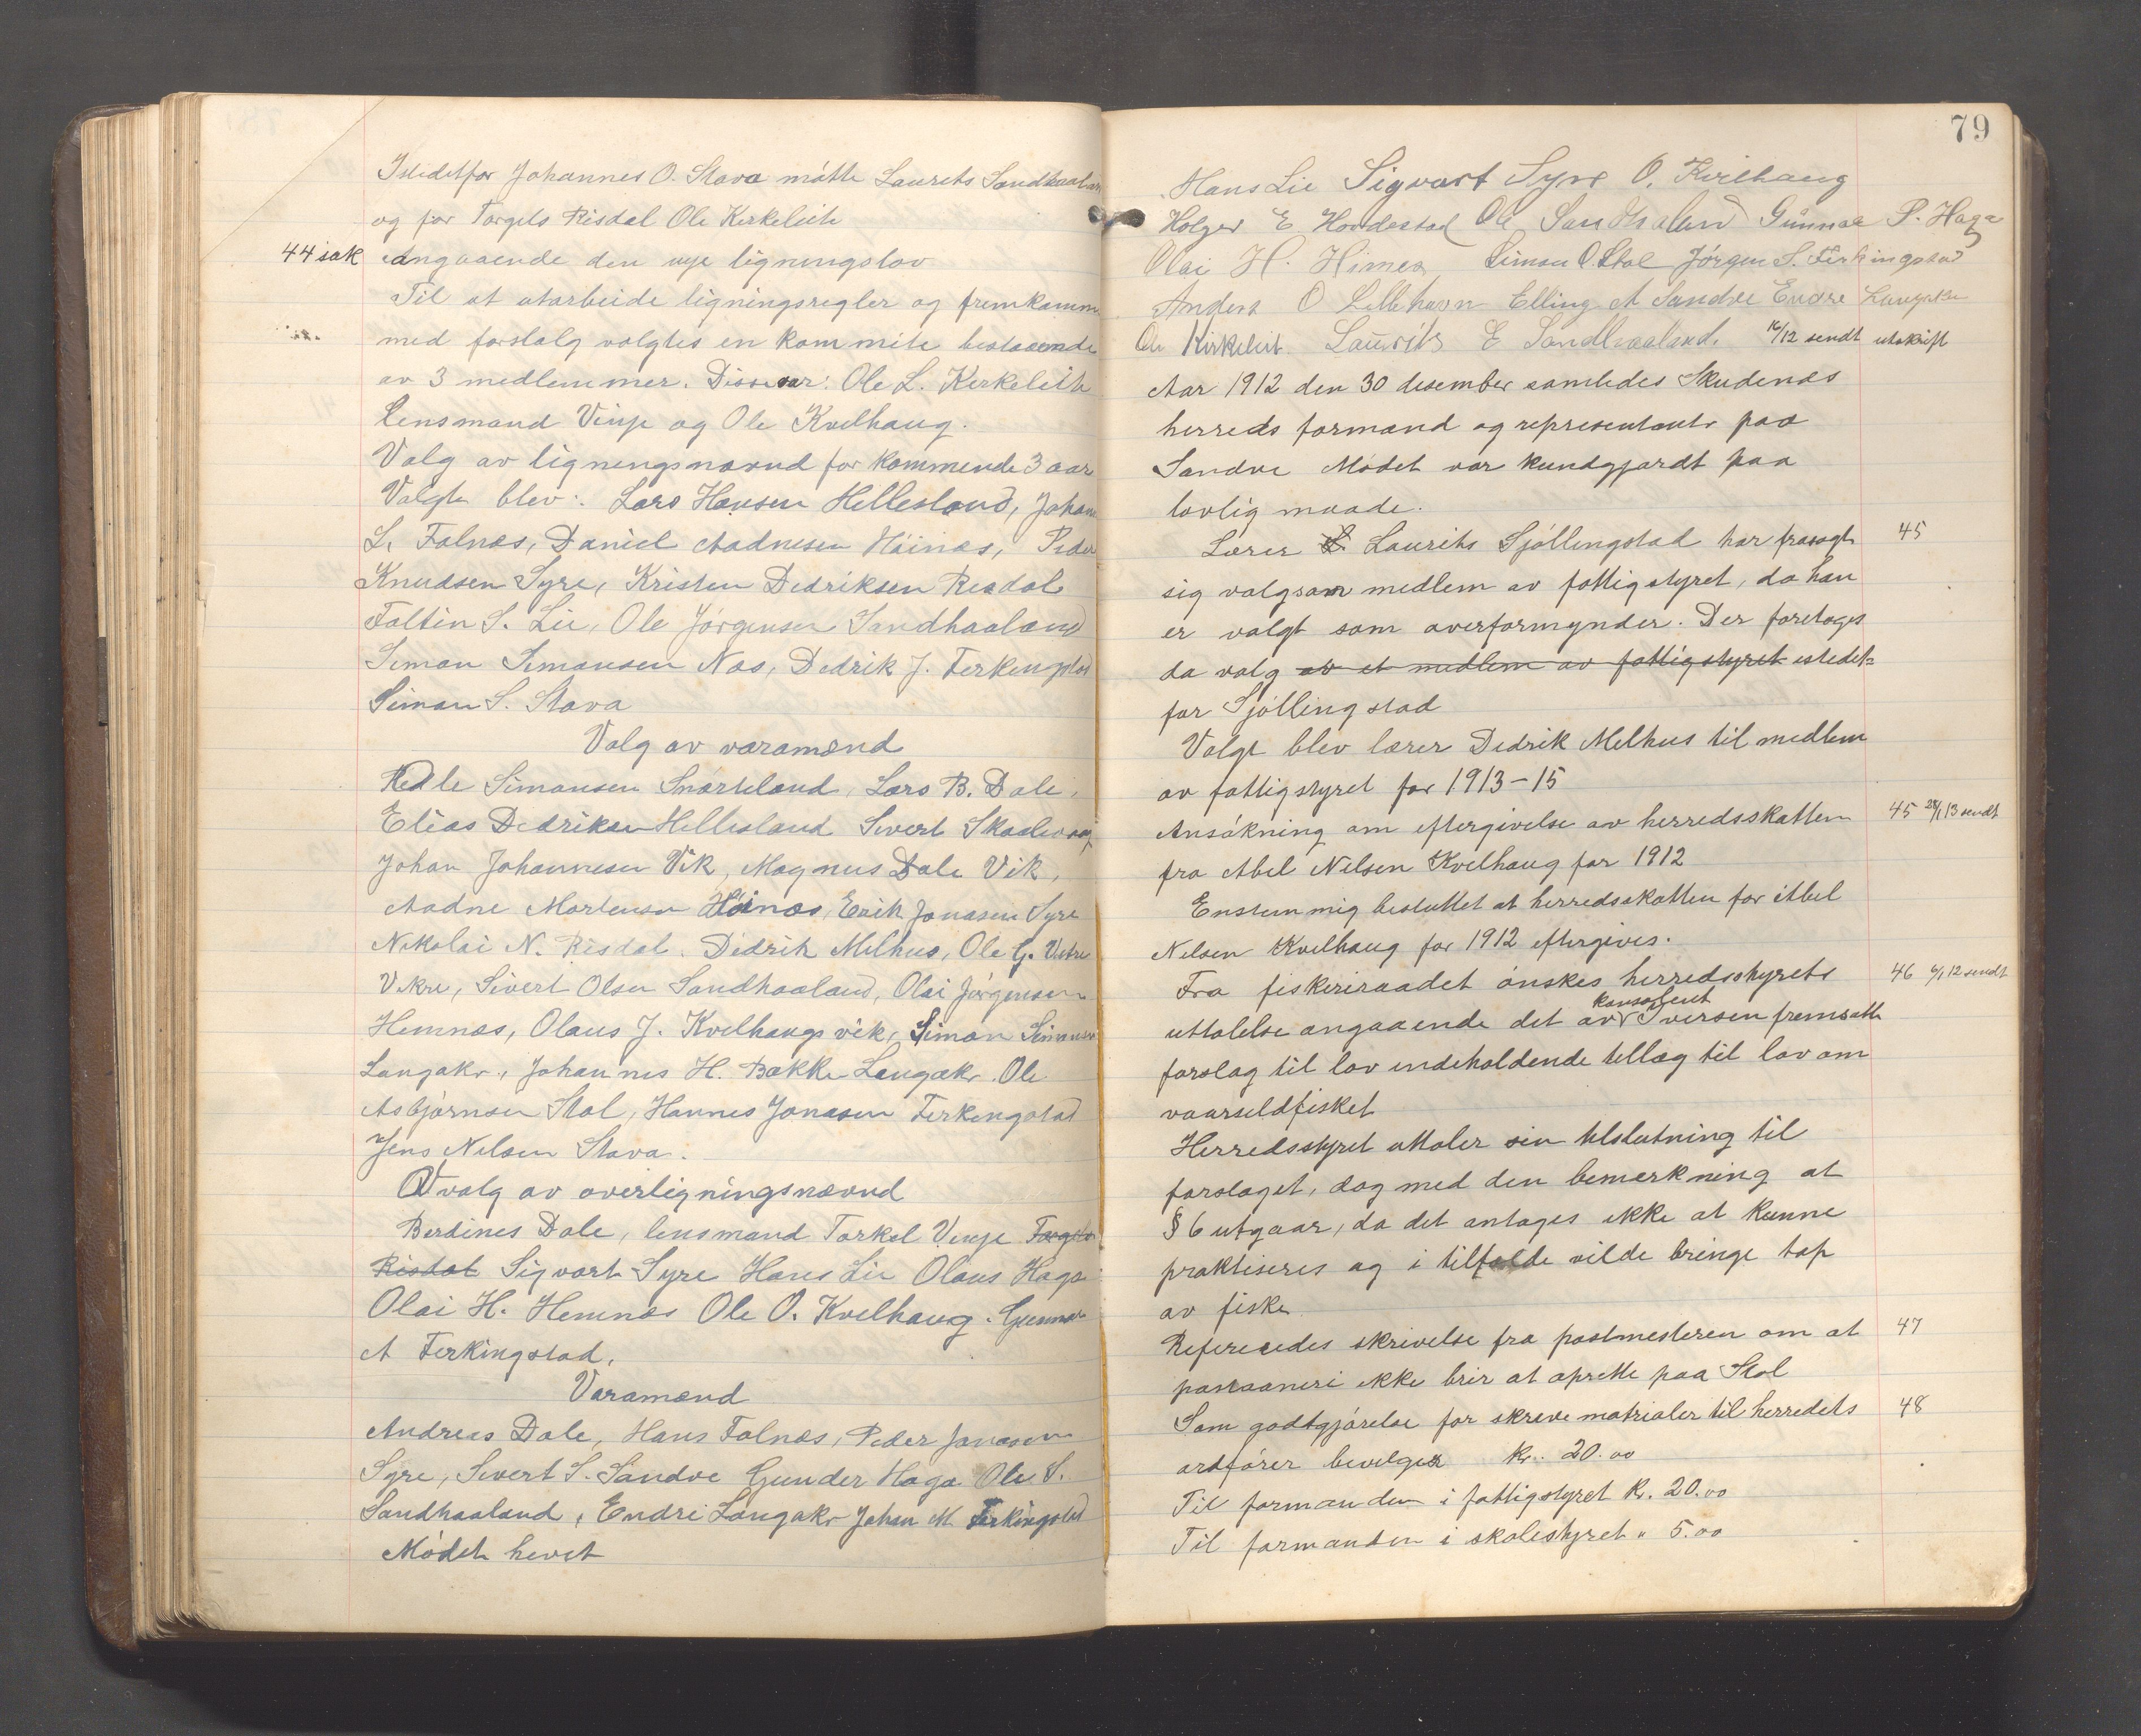 Istedetfor Johannes O. Stava møtte Laurits Sandhaaland
og for Torgils Risdal Ole Kirkeleite
44 sak Angaaende den nye ligningslov
Til at utarbeide ligningsregler og fremkomme
med forslalg valgtes en kommite bestaaende
av 3 medlemmer. Disse var: Ole L. Kirkeleite
Lensmand Vinje og Ole Kvelhaug.
Valg av ligningsnævnd for kommende 3 aar
Valgte blev: Lars Hansen Hellesland, Johan
L. Falnes, Daniel Aadnesen Høinæs, Peder
Knudsen Syre, Kristen Dedriksen Risdal
Faltin S. Lie, Ole Jørgensen Sandhaaland
Simon Simonsen Næs, Dedrik J. Ferkingstad
Simon S. Stava
Valg av varamænd
Simonsen Snørteland, Lars B. Dale,
Elias Dedriksen Hellesland Sivert Skaalevaag
Johan Johannesen Vik, Magnus Dale Vik,
Aadne Mortensen Høinæs, Erik Jonasen Syre
Nikolai N. Risdal. Didrik Melhus, Ole G. Vestre
Vikre, Sivert Olsen Sandhaaland, Olai Jørgensen
Hemnæs, Olaus J. Kvelhaugsvik, Simon Simonsen
Langaker, Johannes H. Bakke Langaker. Ole
Asbjørnsen Stol, Hannes Jonasen Ferkingstad
Jens Nilsen Stava.
valg av overligningsnævnd
Berdines Dale, lensmand Torkel Vinje Torgils
Risdal Sigvart Syre Hans Lie Olaus Haga
Olai H. Hemnæs Ole O. Kvelhaug. Gunnar
A Ferkingstad.
Varamænd
Andreas Dale, Hans Falnæs, Peder Jonasen
Syre, Sivert S. Sandve Gunder Haga Ole S.
Sandhaaland, Endre Langaker Johan M Ferkingstad
Mødet hevet
79
Hans Lie Sigvart Syre O. Kvilhaug
Holger E Hovdestad Ole Sandhaland Gunnar P. Haga
Olai H. Himes Simon O. Stol Jørgen S. Ferkingstad
Anders O Lillehavn Elling A Sandve Endre Langaker
Ole Kirkeleit. Laurits E Sandhaaland. 16/12 sendt utskrift
Aar 1912 den 30 desember samledes Skudenæs
herreds formænd og representanter paa
Sandve Mødet var kundgjordt paa
lovlig maade.
Lærer L Laurits Sjøllingstad har frasagt 45
sig valg som medlem av fattigstyret, da han
er valgt som overformynder. Der foretages
da valg av et medlem av fattigstyret istedet-
for Sjøllingstad
Valgt blev lærer Didrik Melhus til medlem
av fattigstyret for 1913-15
Ansøkning om eftergivelse av herredsskatten 45 28/1 13 sendt
fra Abel Nilsen Kvelhaug for 1912
Enstemmig besluttet at herredsskatten for Abel
Nilsen Kvelhaug for 1912 eftergives.
Fra fiskeriraadet ønskes herredsstyrets 46 6/1 12 sendt
konsulent
uttalelse angaaende det av Iversen fremsatte
forslag til lov indeholdende tillæg til lov om
vaarsildfisket
Herredsstyret uttaler sin tilslutning til
forslaget, dog med den bemerkning at
§ 6 utgaar, da det antages ikke at kunne
praktiseres og i tilfælde vilde bringe tap
av fiske.
Refereredes skrivelse fra postmesteren om at 47
postaapneri ikke blir at oprette paa Stol
Som godtgjørelse for skrivematrialer til herredets 48
ordfører bevilges Kr. 20.00
Til formanden i fattigstyret Kr. 20.00
Til formanden i skolestyret " 5.00